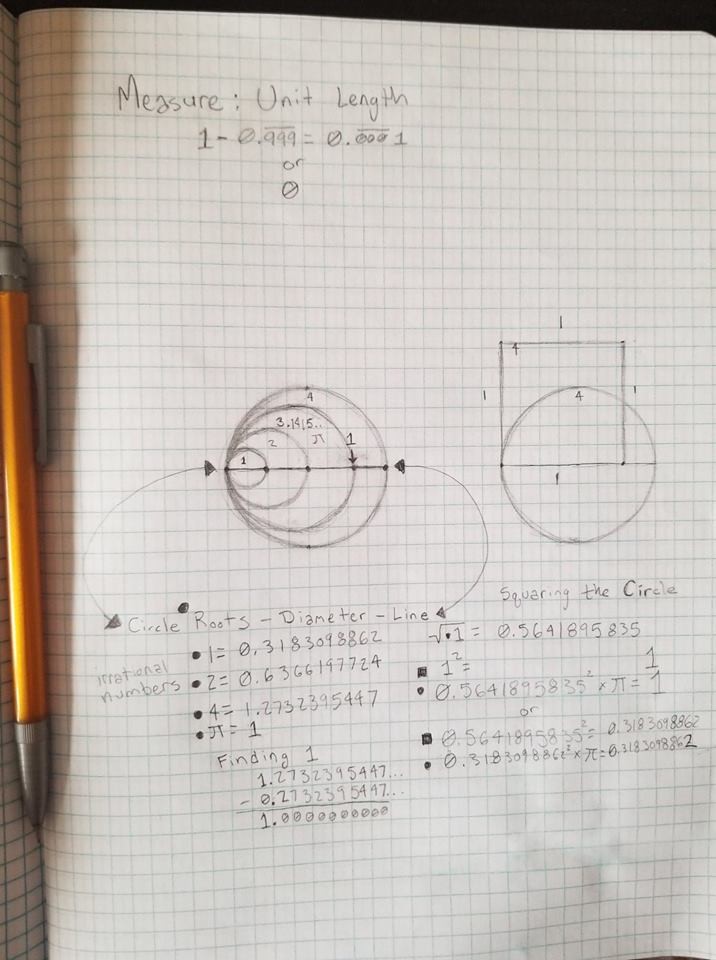 Measure: Unit Length
1 - 0.999 = 0.000 1
or
0
1
4
4
1
1
4
3.1415...
π
1
2
1
1
Squaring the Circle
Circle Roots - Diameter - Line
√•1 = 0.5641895835
irrational numbers
• 1 = 0.3183098862
• 2 = 0.6366197724
• 4 = 1.2732395447
• π = 1
■ 1² = 1
• 0.5641895835² × π = 1
or
■ 0.5641895835² = 0.3183098862
• 0.3183098862² × π = 0.3183098862
Finding 1
1.2732395447...
- 0.2732395447...
1.0000000000